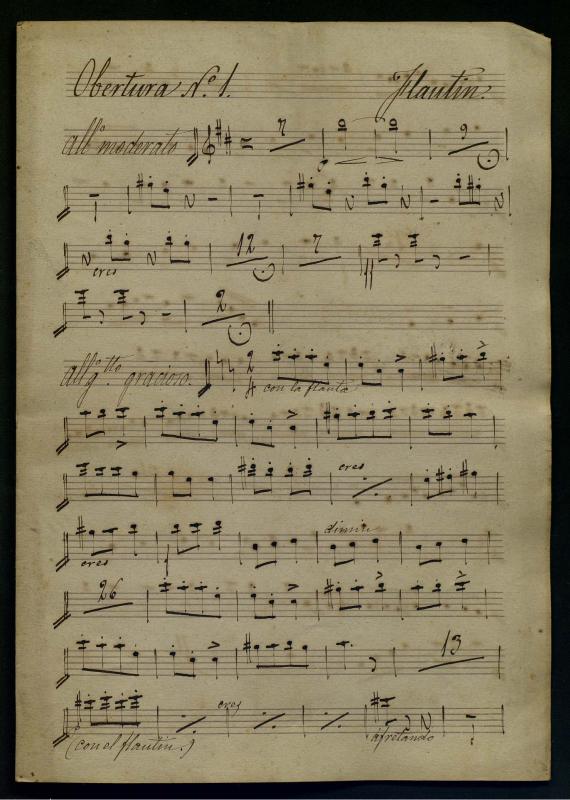 Obertura Nº 1. Flautin.
allº moderato 7 9
cres 12 7
2
allº gº tto gracioso. 2 4 con la flauta
cres
cres dimin
26
13
cres
(con el flautin.) afretando